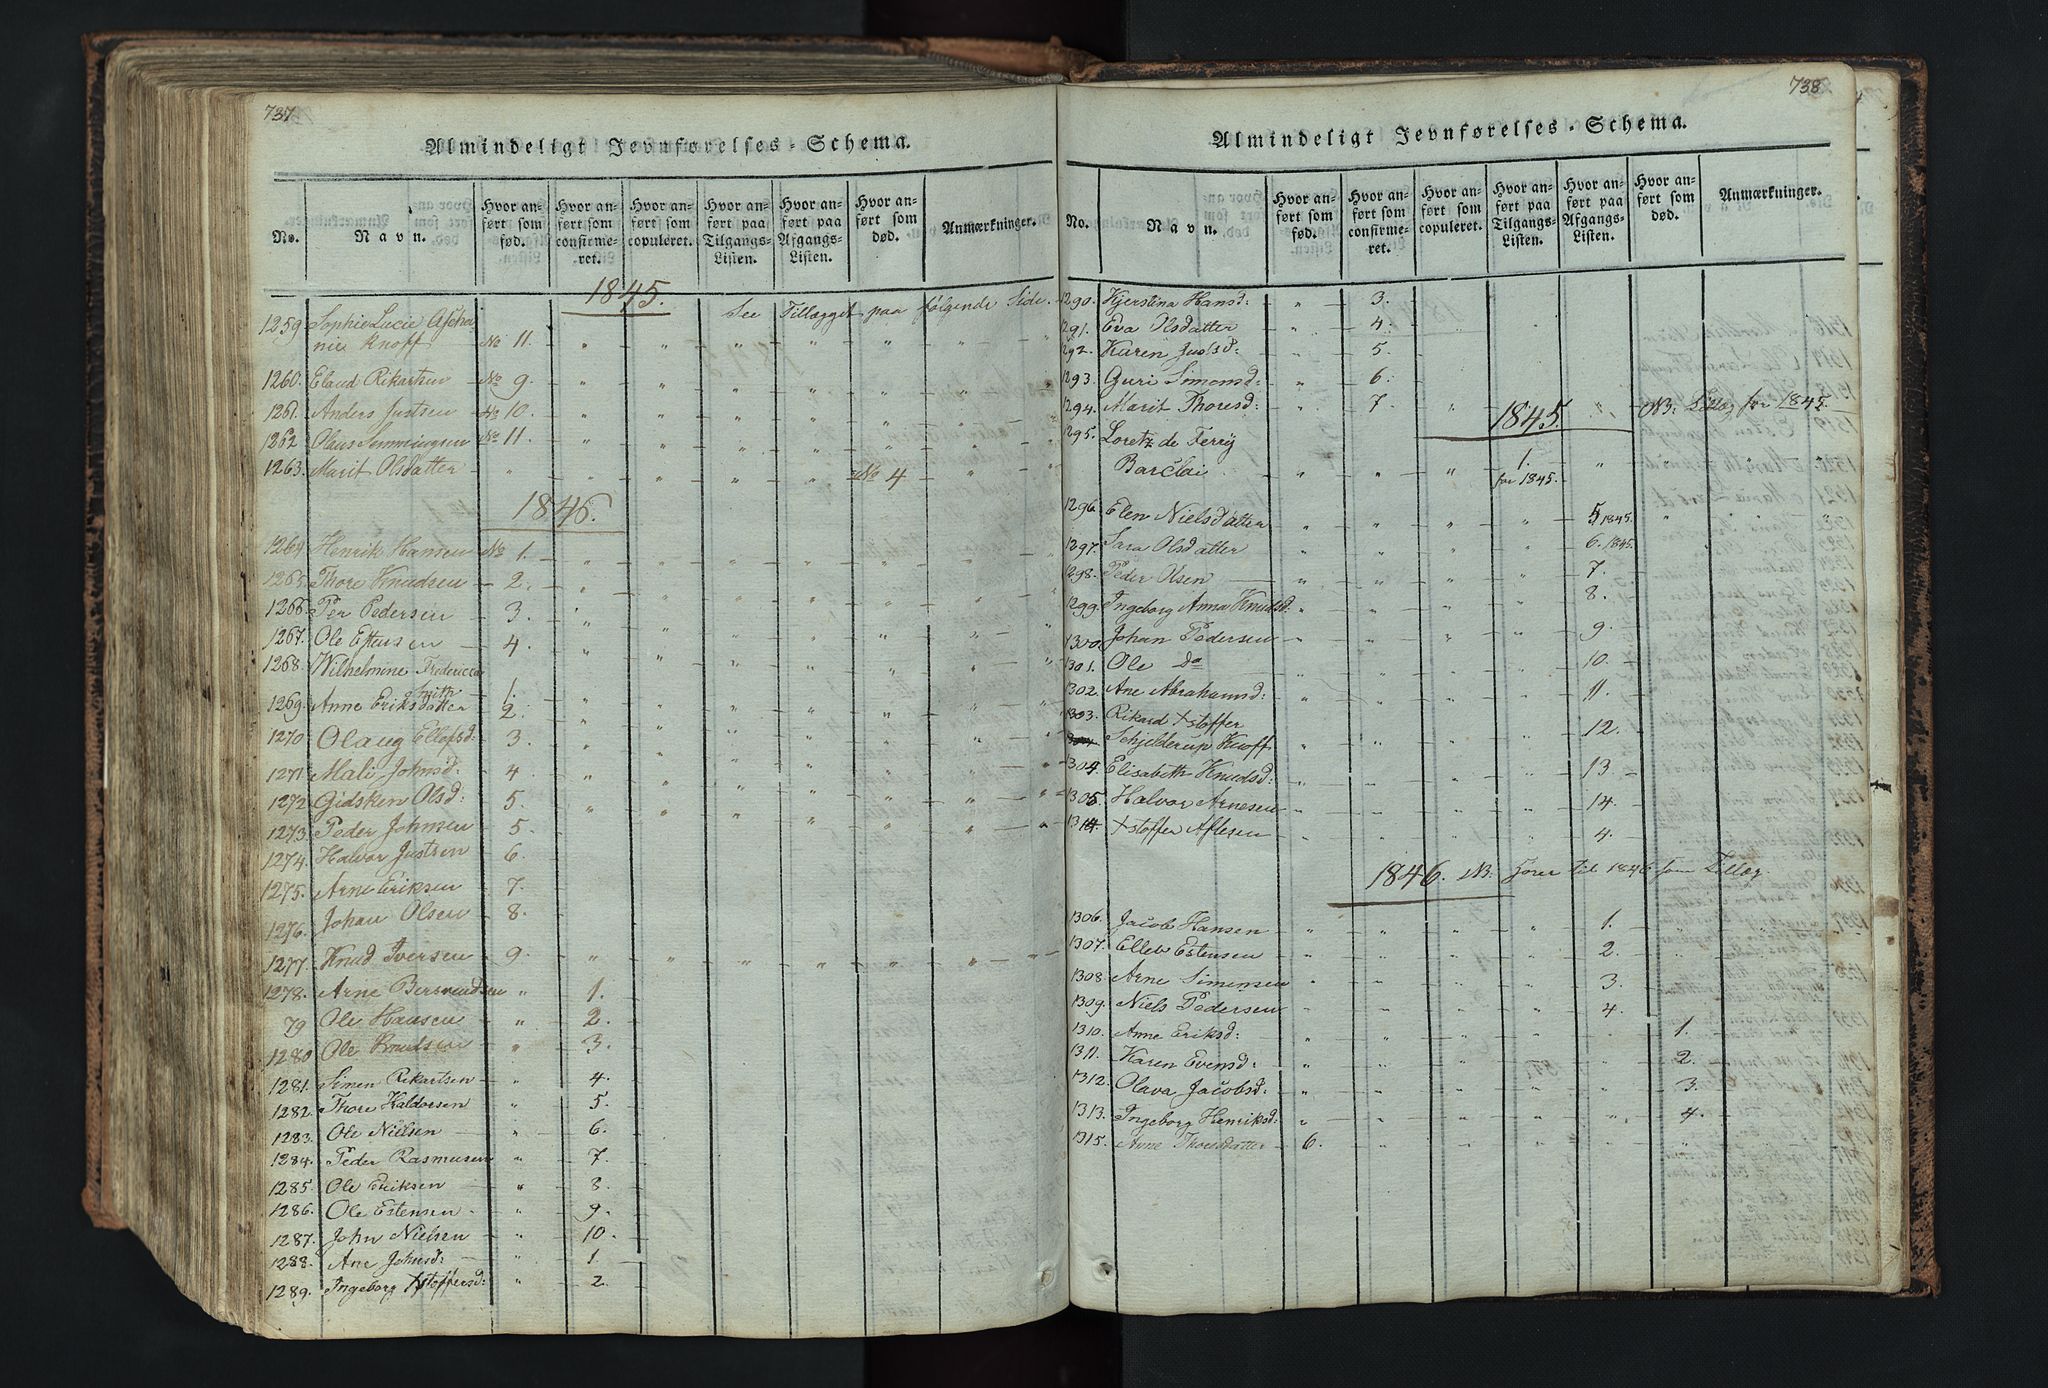 737
Almindeligt Jevnførelses-Schema.
No. Navn. Hvor anført som fød. Hvor anført som confirmeret. Hvor anført som copuleret. Hvor anført paa Tilgangs-Listen. Hvor anført paa Afgangs-Listen. Hvor anført som død. Anmærkninger.
1845. See Tillægget paa følgende Side.
1259 Sophie Lucie
nie Knoff No 11.
1260. Elaud Rikartsen No 9.
1261. Anders Justsen No 10.
1262 Olaus Semmingsen No 11.
1263. Marit Olsdatter No 4
1846.
1264 Henrik Hansen No 1.
1265. Thore Knudsen 2.
1266. Per Pedersen 3.
1267. Ole Estensen 4.
1268. Wilhelmine Fredericia
Smith 1.
1269. Anne Eriksdatter 2.
1270 Olaug Ellefsd: 3.
1271 Mali Johnsd. 4.
1272 Gidsken Olsd: 5.
1273. Peder Johnsen 5.
1274. Halvor Justsen 6.
1275. Arne Eriksen 7.
1276. Johan Olsen 8.
1277. Knud Iversen 9.
1278. Arne Bersvendsen " 1.
79 Ole Hansen " 2.
1280 Ole Knudsen " 3.
1281. Simen Rikartsen " 4.
1282. Thore Haldorsen " 5.
1283. Ole Nielsen " 6.
1284. Peder Rasmusen " 7.
1285. Ole Eriksen " 8.
1286. Ole Estensen " 9.
1287. John Nielsen " 10.
1288. Ane Johnsd: " 1.
1289. Ingeborg Xstoffersd: " 2.
738
Almindeligt Jevnførelses-Schema.
No. Navn. Hvor anført som fød. Hvor anført som confirmeret. Hvor anført som copuleret. Hvor anført paa Tilgangs-Listen. Hvor anført paa Afgangs-Listen. Hvor anført som død. Anmærkninger.
1290. Kjerstina Hansd: " 3.
1291. Eva Olsdatter " 4.
1292. Karen d: " 5.
1293. Guri Simonsd: " 6.
1294. Marit Thoresd: " 7. 1845. NB: Tillæg for 1845.
1295. Loretz de Ferry
Barclai 1. for 1845.
1296. Elen Nielsdatter 5 1845.
1297. Sara Olsdatter 6. 1845.
1298. Peder Olsen 7.
1299. Ingeborg Anna Knudsd: 8.
1300. Johan Pedersen 9.
1301. Ole Do 10.
1302. Ane Abrahamsd: 11.
1303. Rikard Xstoffer
Schjelderup Knoff 12.
1304. Elisabeth Knudsd: 13.
1305. Halvor Arnesen 14.
1314. Xstoffer Aflesen 4.
1846. NB: til 1846 som Tillæg.
1306. Jacob Hansen 1.
1307. Ellev Estensen 2.
1308. Arne Simensen 3.
1309. Niels Pedersen 4.
1310. Anne Eriksd: 1.
1311. Karen Evensd: 2.
1312. Olava Jacobsd: 3.
1313. Ingeborg Henriksd: 4.
1315. Arne Thoresdatter 6.